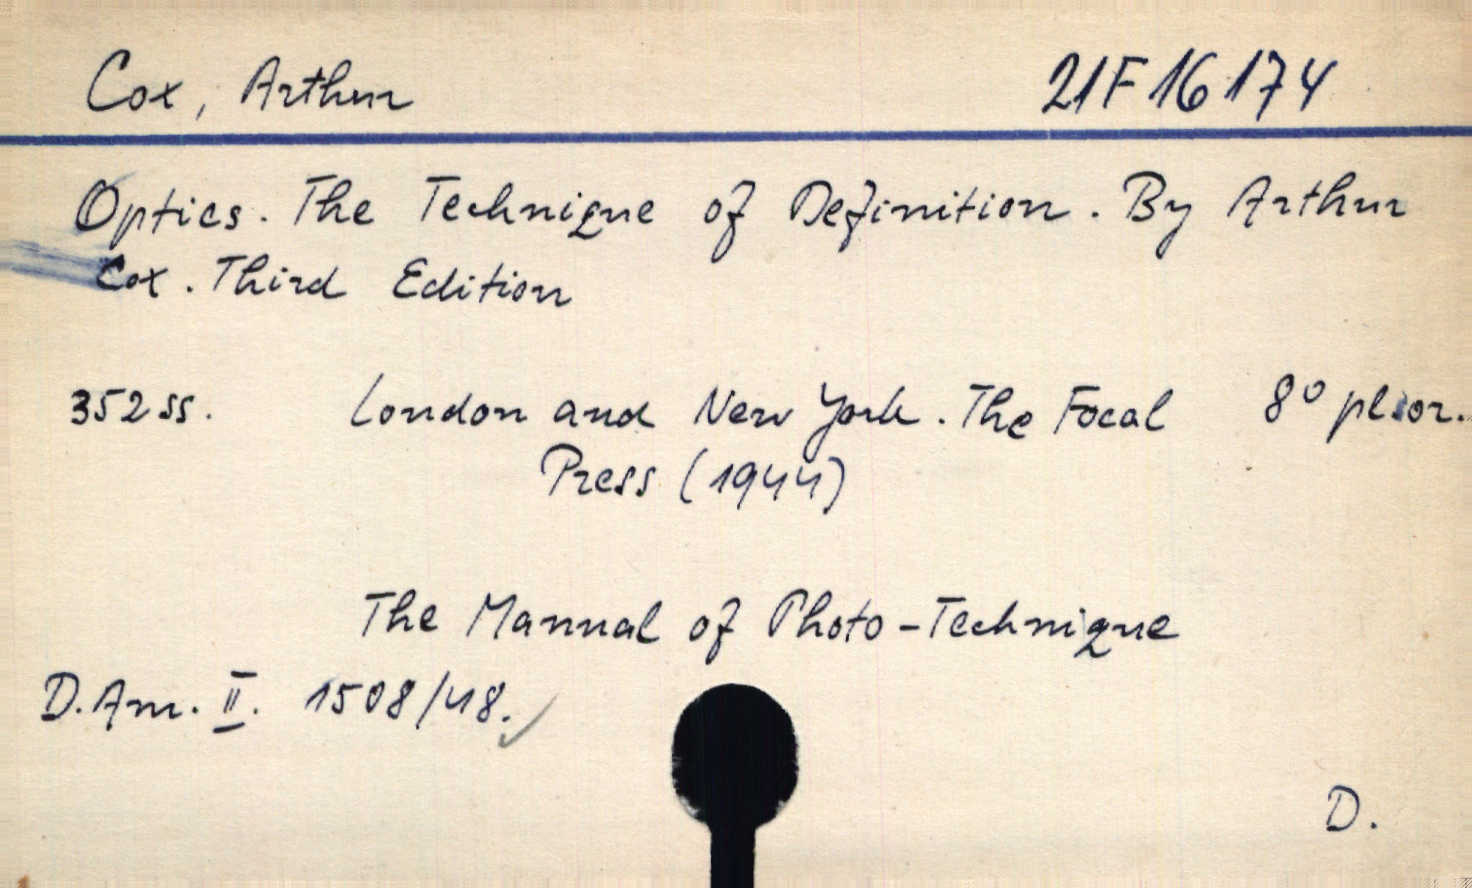 Cox, Arthur 21F16174
Optics. The Technique of Definition. By Arthur
Cox. Third Edition
352 ss. London and New York. The Focal 8° pl. or.
Press (1944)
The Manual of Photo-Technique
D. Am. II. 1508/48.
D.